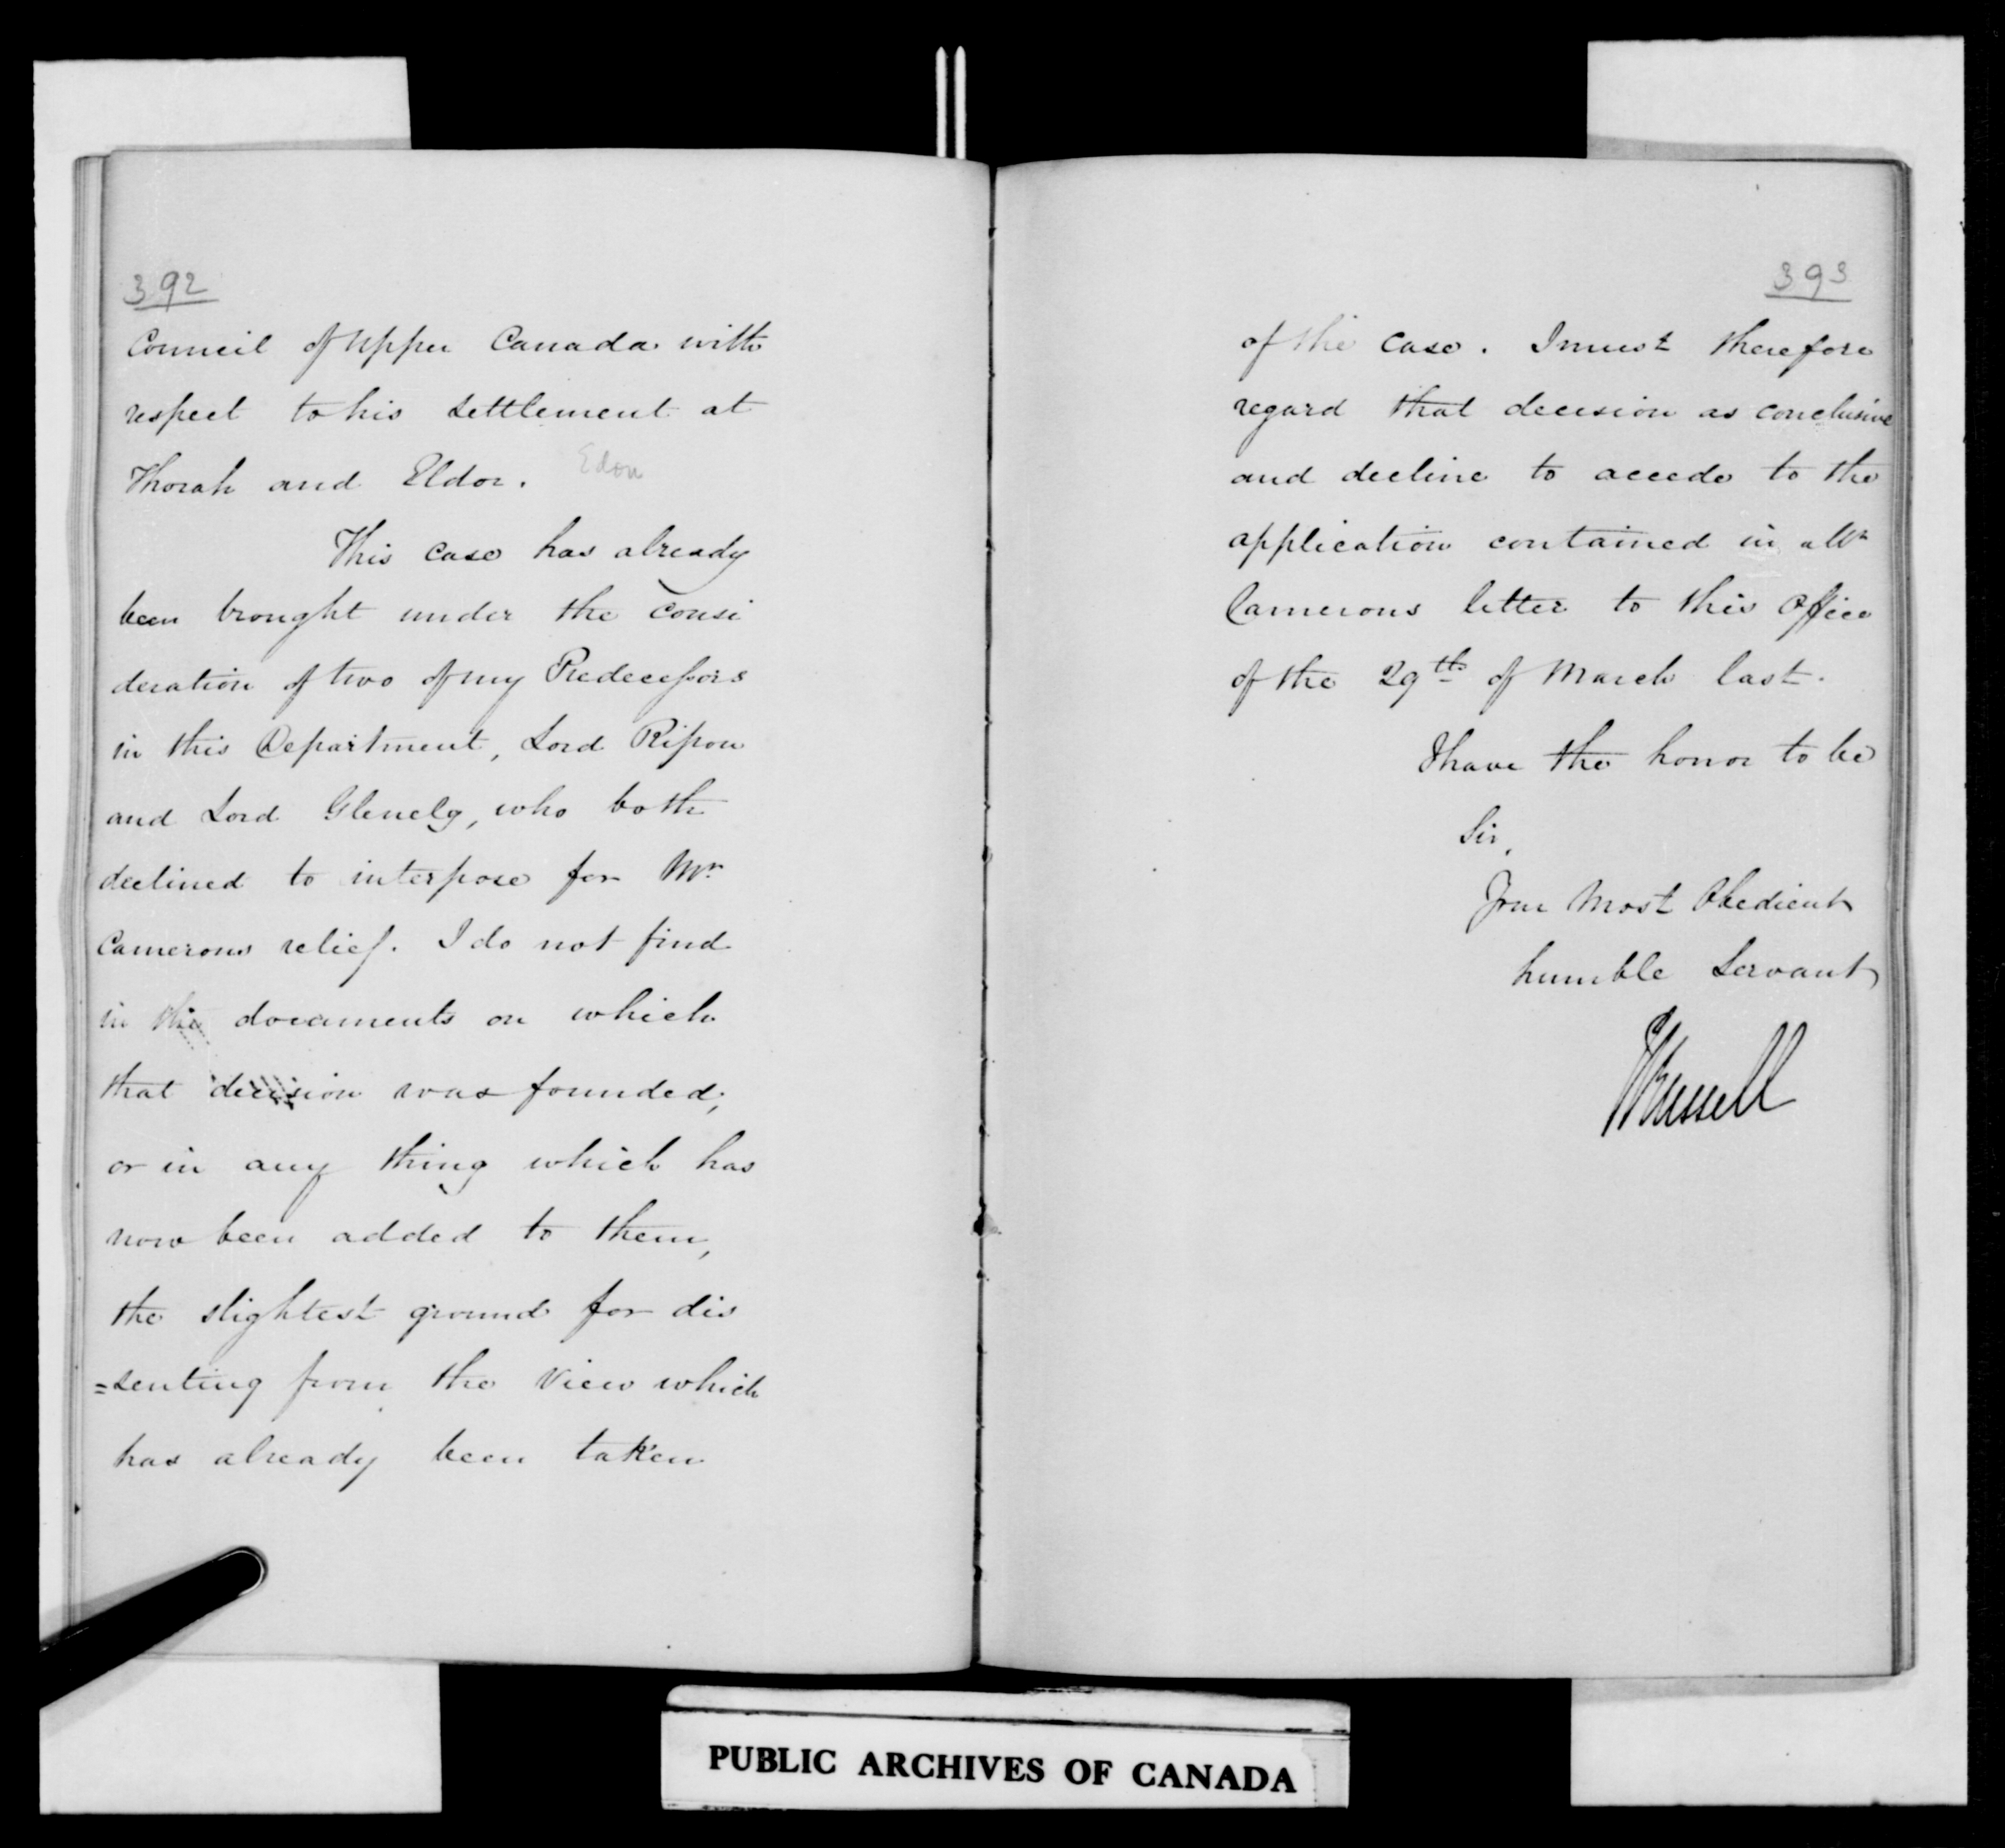 392
Council of Upper Canada with
respect to his settlement at
Thorah and Eldor. Edon
This case has already
been brought under the consi
deration of two of my Predecessors
in this Department, Lord Ripon
and Lord Glenelg, who both
declined to interpose for Mr
Camerons relief. I do not find
in the documents on which
that decision was founded,
or in any thing which has
now been added to them,
the slightest ground for dis
=senting from the view which
has already been taken
393
of the case. I must therefore
regard that decision as conclusive
and decline to accede to the
application contained in Mr
Camerons letter to this Office
of the 29th of March last.
I have the honor to be
Sir,
Your Most Obedient
humble Servant
J Russell
PUBLIC ARCHIVES OF CANADA